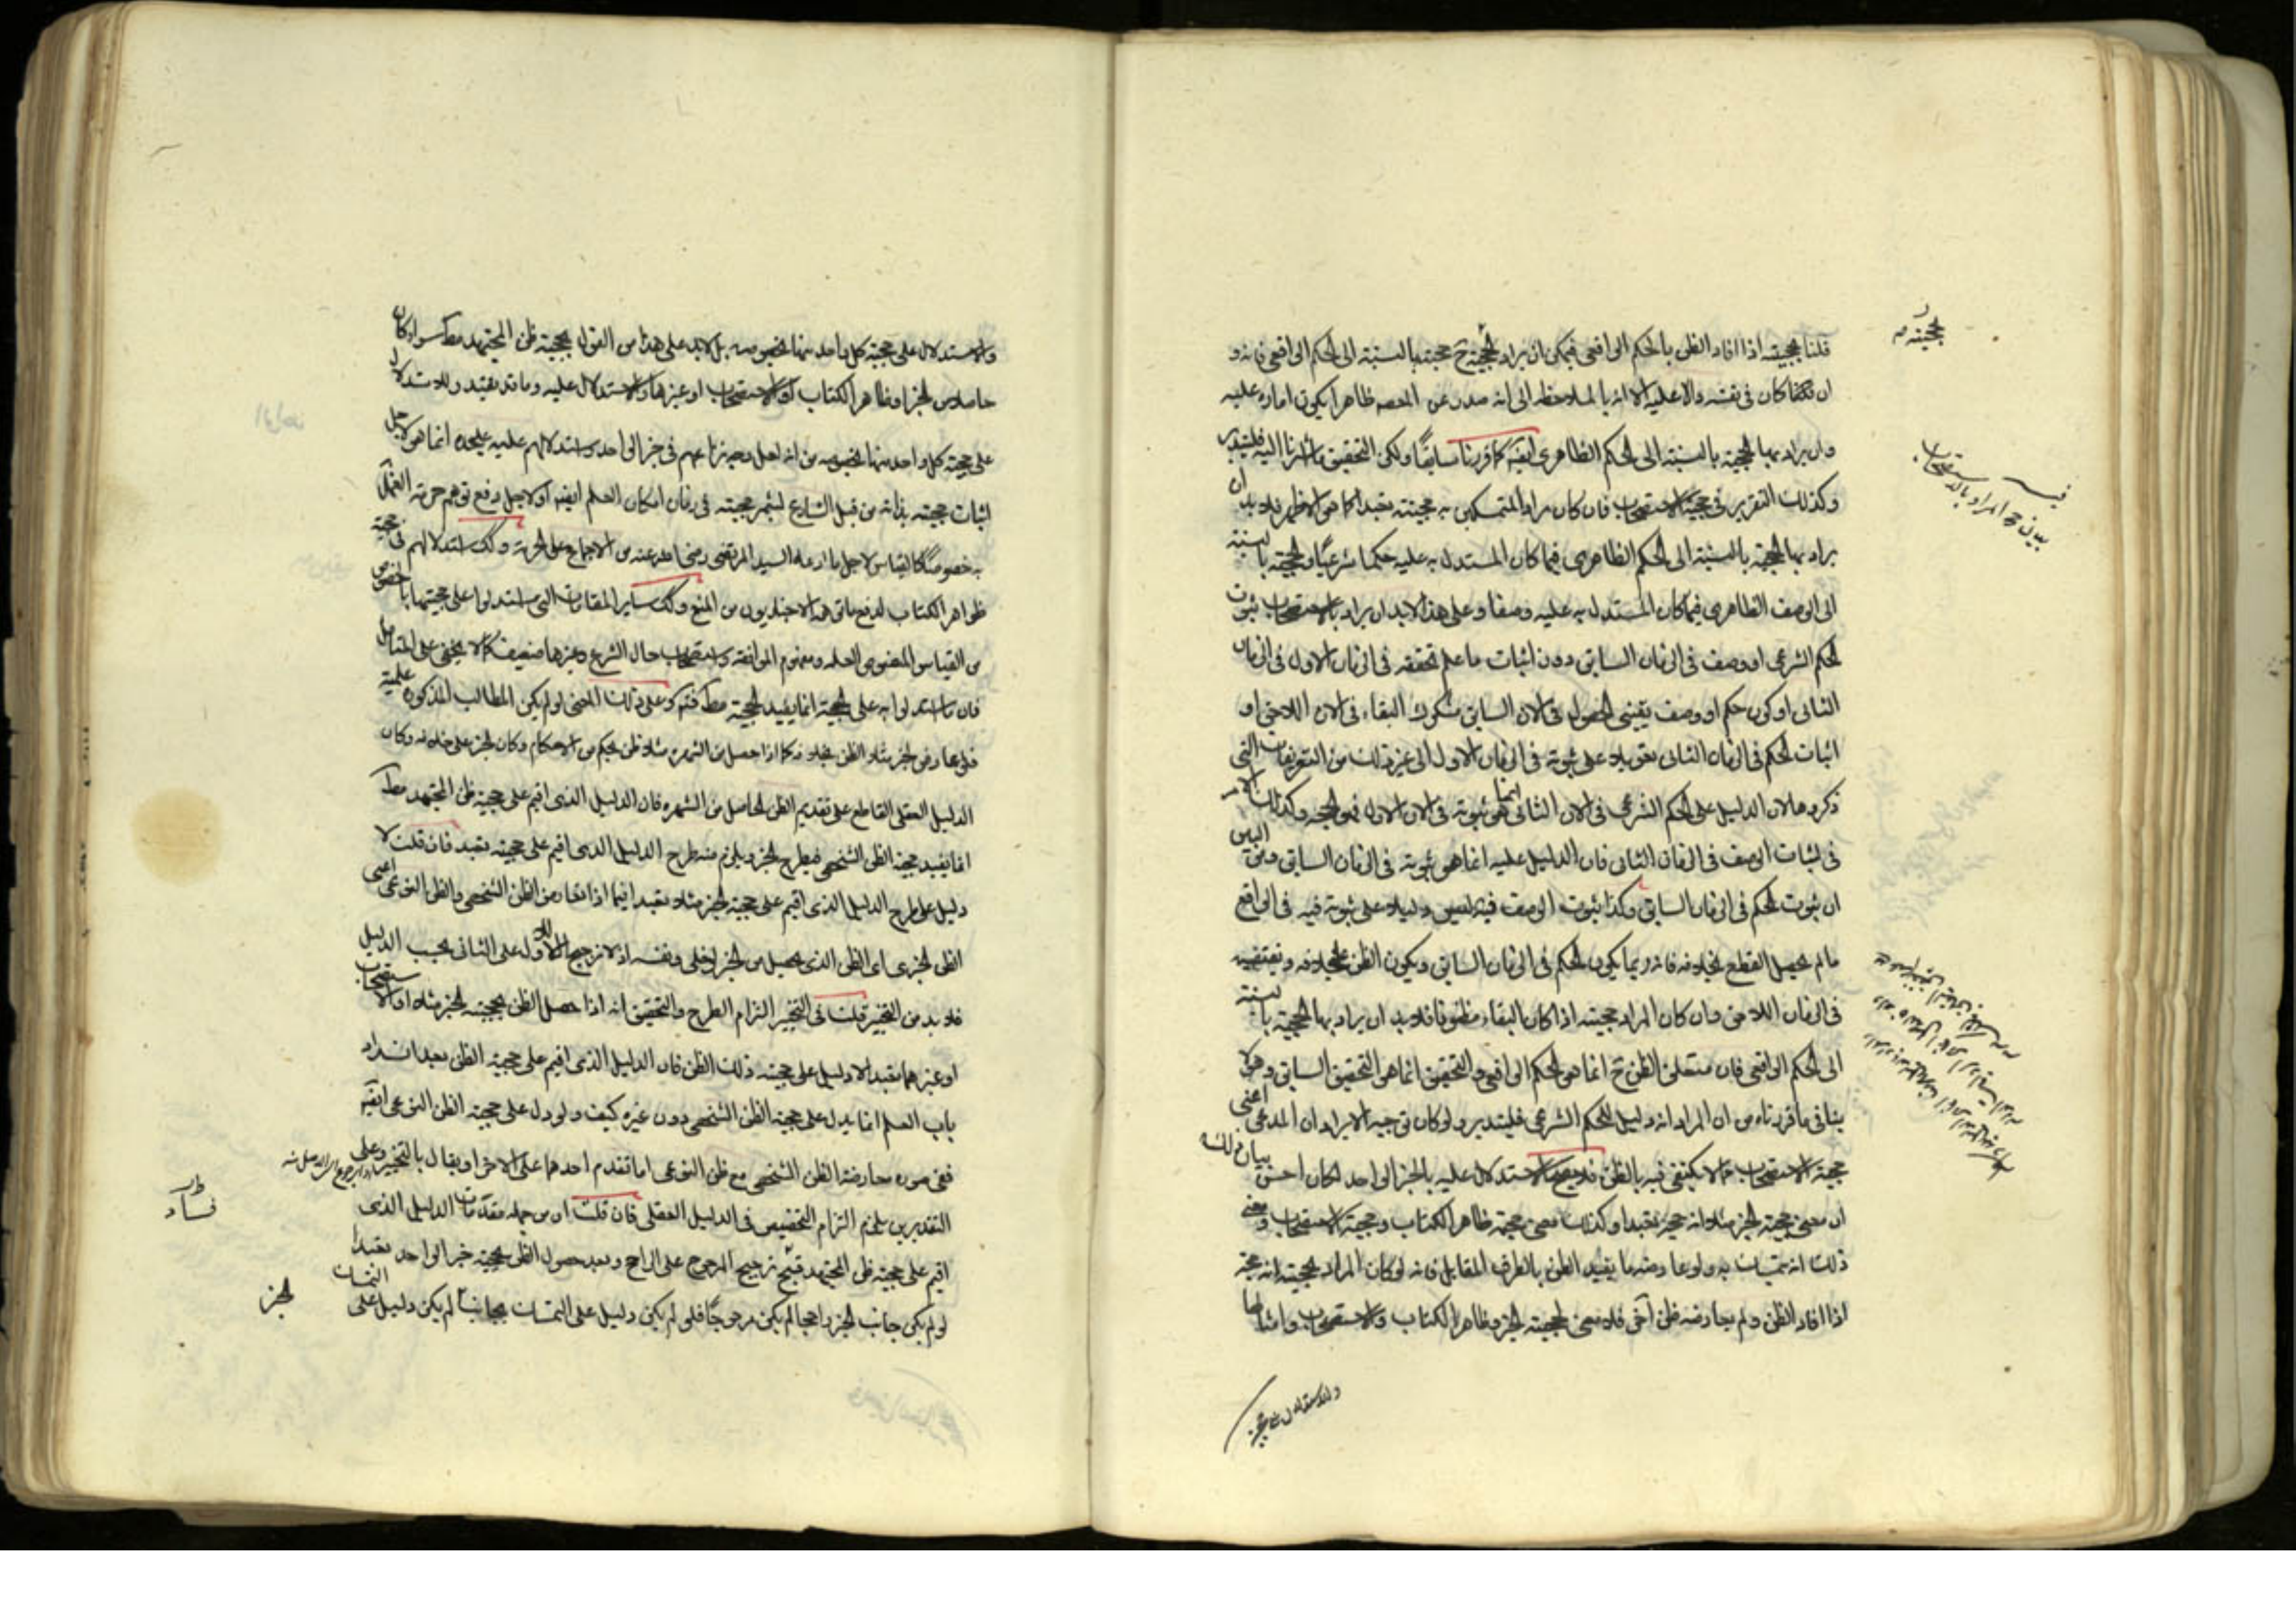 قلنا بحجيته اذا افاد الظن بالحكم الواقعى فيمكن ان يراد بالحجية ح حجيته بالنسبة الى الحكم الواقعى فانه و
ان كان فى نفسه دالا عليه الا انه بالملاحظة الى انه صدر عن المعصوم ظاهرا يكون امارة عليه
وان يراد بها الحجية بالنسبة الى الحكم الظاهرى ايضا كما قررنا سابقا ولكن التحقيق ما اشرنا اليه فليتدبر
وكذلك التقرير فى حجية الاستصحاب فان كان مراد المتمسكين به حجيته تعبدا كما هو الاظهر فلا بد ان
يراد بها الحجية بالنسبة الى الحكم الظاهرى فيما كان المستدل به عليه حكما شرعيا والحجية بالنسبة
الى الوصف الظاهرى فيما كان المستدل به عليه وصفا وعلى هذا لابد ان يراد بالاستصحاب ثبوت
الحكم الشرعى او وصف فى الزمان السابق دون اثبات ما علم تحققه فى الزمان الاول فى الزمان
الثانى او كون حكم او وصف يقينى الحصول فى الان السابق مشكوك البقاء فى الان اللاحق او
اثبات الحكم فى الزمان الثانى تعويلا على ثبوته فى الزمان الاول الى غير ذلك من التعريفات التى
ذكروها لان الدليل على الحكم الشرعى فى الان الثانى انما هو ثبوته فى الان الاول فهو الحجة وكذلك الامر
فى اثبات الوصف فى الزمان الثانى فان الدليل عليه انما هو ثبوته فى الزمان السابق ومن البين
ان ثبوت الحكم فى الزمان السابق وكذا ثبوت الوصف فيه ليس دليلا على ثبوته فيه فى الواقع
ما لم يحصل القطع بخلافه فانه ربما يكون الحكم فى الزمان السابق ويكون الظن بخلافه ونقيضه
فى الزمان اللاحق وان كان المراد حجيته اذا كان البقاء مظنونا فلا بد ان يراد بها الحجية بالنسبة
الى الحكم الواقعى فان متعلق الظن ح انما هو الحكم الواقعى والتحقيق انما هو التحقيق السابق وهو لا
ينافى ما قررناه من ان المراد انه دليل للحكم الشرعى فليتدبر ولو كان توجيه الايراد ان المدعى اعنى
حجية الاستصحاب مما لا يكتفى فيه بالظن فلا يصح الاستدلال عليه بالخبر الواحد لكان احسن بيان ذلك
ان معنى حجية الخبر مثلا انه حجة تعبدا وكذلك معنى حجية ظاهر الكتاب وحجية الاستصحاب ومعنى
ذلك انه يتمسك به ولو عارضه ما يفيد الظن بالطرف المقابل فانه لو كان المراد بحجيته انه حجة
اذا افاد الظن ولم يعارضه ظن آخر فلا معنى لحجية الخبر وظاهر الكتاب والاستصحاب وامثالها
والاستدلال على حجية
بحجيته
بيان المراد بالاستصحاب
والاستدلال على حجية كل واحد منها بخصوصه بل لابد على هذا من القول بحجية ظن المجتهد مط سواء كان
حاصلا من الخبر او ظاهر الكتاب او الاستصحاب او غيرها والاستدلال عليه وما قد يعتذر للاستدلال
على حجية كل واحد منها بخصوصه من ان اهل وحيزناعهم فى خبر الواحد واستدلالهم عليه عليحده انما هو لاجل
اثبات حجيته بذاته من قبل الشارع ليثمر حجيته فى زمان امكان العلم ايضا او لاجل دفع توهم حرمة العمل
به خصوصا كالقياس لاجل ما ادعاه السيد المرتضى رضى الله عنه من الاجماع على الحرمة وكك استدلالهم فى حجية
ظواهر الكتاب لدفع ما توهمه الاخباريون من المنع وكك ساير المقامات التى استدلوا على حجيتها بالخصوص
من القياس المنصوص العلة ومفهوم الموافقة واستصحاب حال الشرع وغيرها ضعيف كما لا يخفى على المتامل
فان ما استدلوا به على الحجية انما يفيد الحجية مط فتم وعلى ذلك المعنى لو لم يكن المطالب المذكورة علمية
فلو عارض الخبر مثلا الظن بخلافه كما اذا حصل من الشهرة مثلا ظن بحكم من الاحكام وكان الخبر على خلافه وكان
الدليل العقلى القاطع على تقديم الظن الحاصل من الشهرة فان الدليل الذى اقيم على حجية ظن المجتهد مط
انما يفيد حجية الظن الشخصى فيطرح الخبر ويلزم منه طرح الدليل الذى اقيم على حجيته تعبدا فان قلت لا
دليل على طرح الدليل الذى اقيم على حجية الخبر مثلا تعبدا فيما اذا تعارض الظن الشخصى والظن النوعى اعنى
الظن الخبرى اى الظن الذى يحصل من الخبر لو خلى ونفسه اذ لا ترجيح للاول على الثانى بحسب الدليل
فلا بد من التخيير قلت فى التخيير التزام الطرح والتحقيق انه اذا حصل الظن بحجية الخبر مثلا او الاستصحاب
او غيرهما تعبدا لا دليل على حجية ذلك الظن فان الدليل الذى اقيم على حجية الظن بعد انسداد
باب العلم انما يدل على حجية الظن الشخصى دون غيره كيف ولو دل على حجية الظن النوعى ايضا
ففى صورة معارضة الظن الشخصى مع ظن النوعى اما تقدم احدهما على الاخر او يقال بالتخيير وعلى
التقديرين يلزم التزام التخصيص فى الدليل العقلى فان قلت ان من جملة مقدمات الدليل الذى
اقيم على حجية ظن المجتهد قبح ترجيح المرجوح على الراجح وبعد حصول الظن بحجية خبر الواحد تعبدا
لو لم يكن جانب الخبر راجحا لم يكن مرجوحا فلو لم يكن دليل على التمسك بجانب لم يكن دليل على التمسك
فساد
الخبر